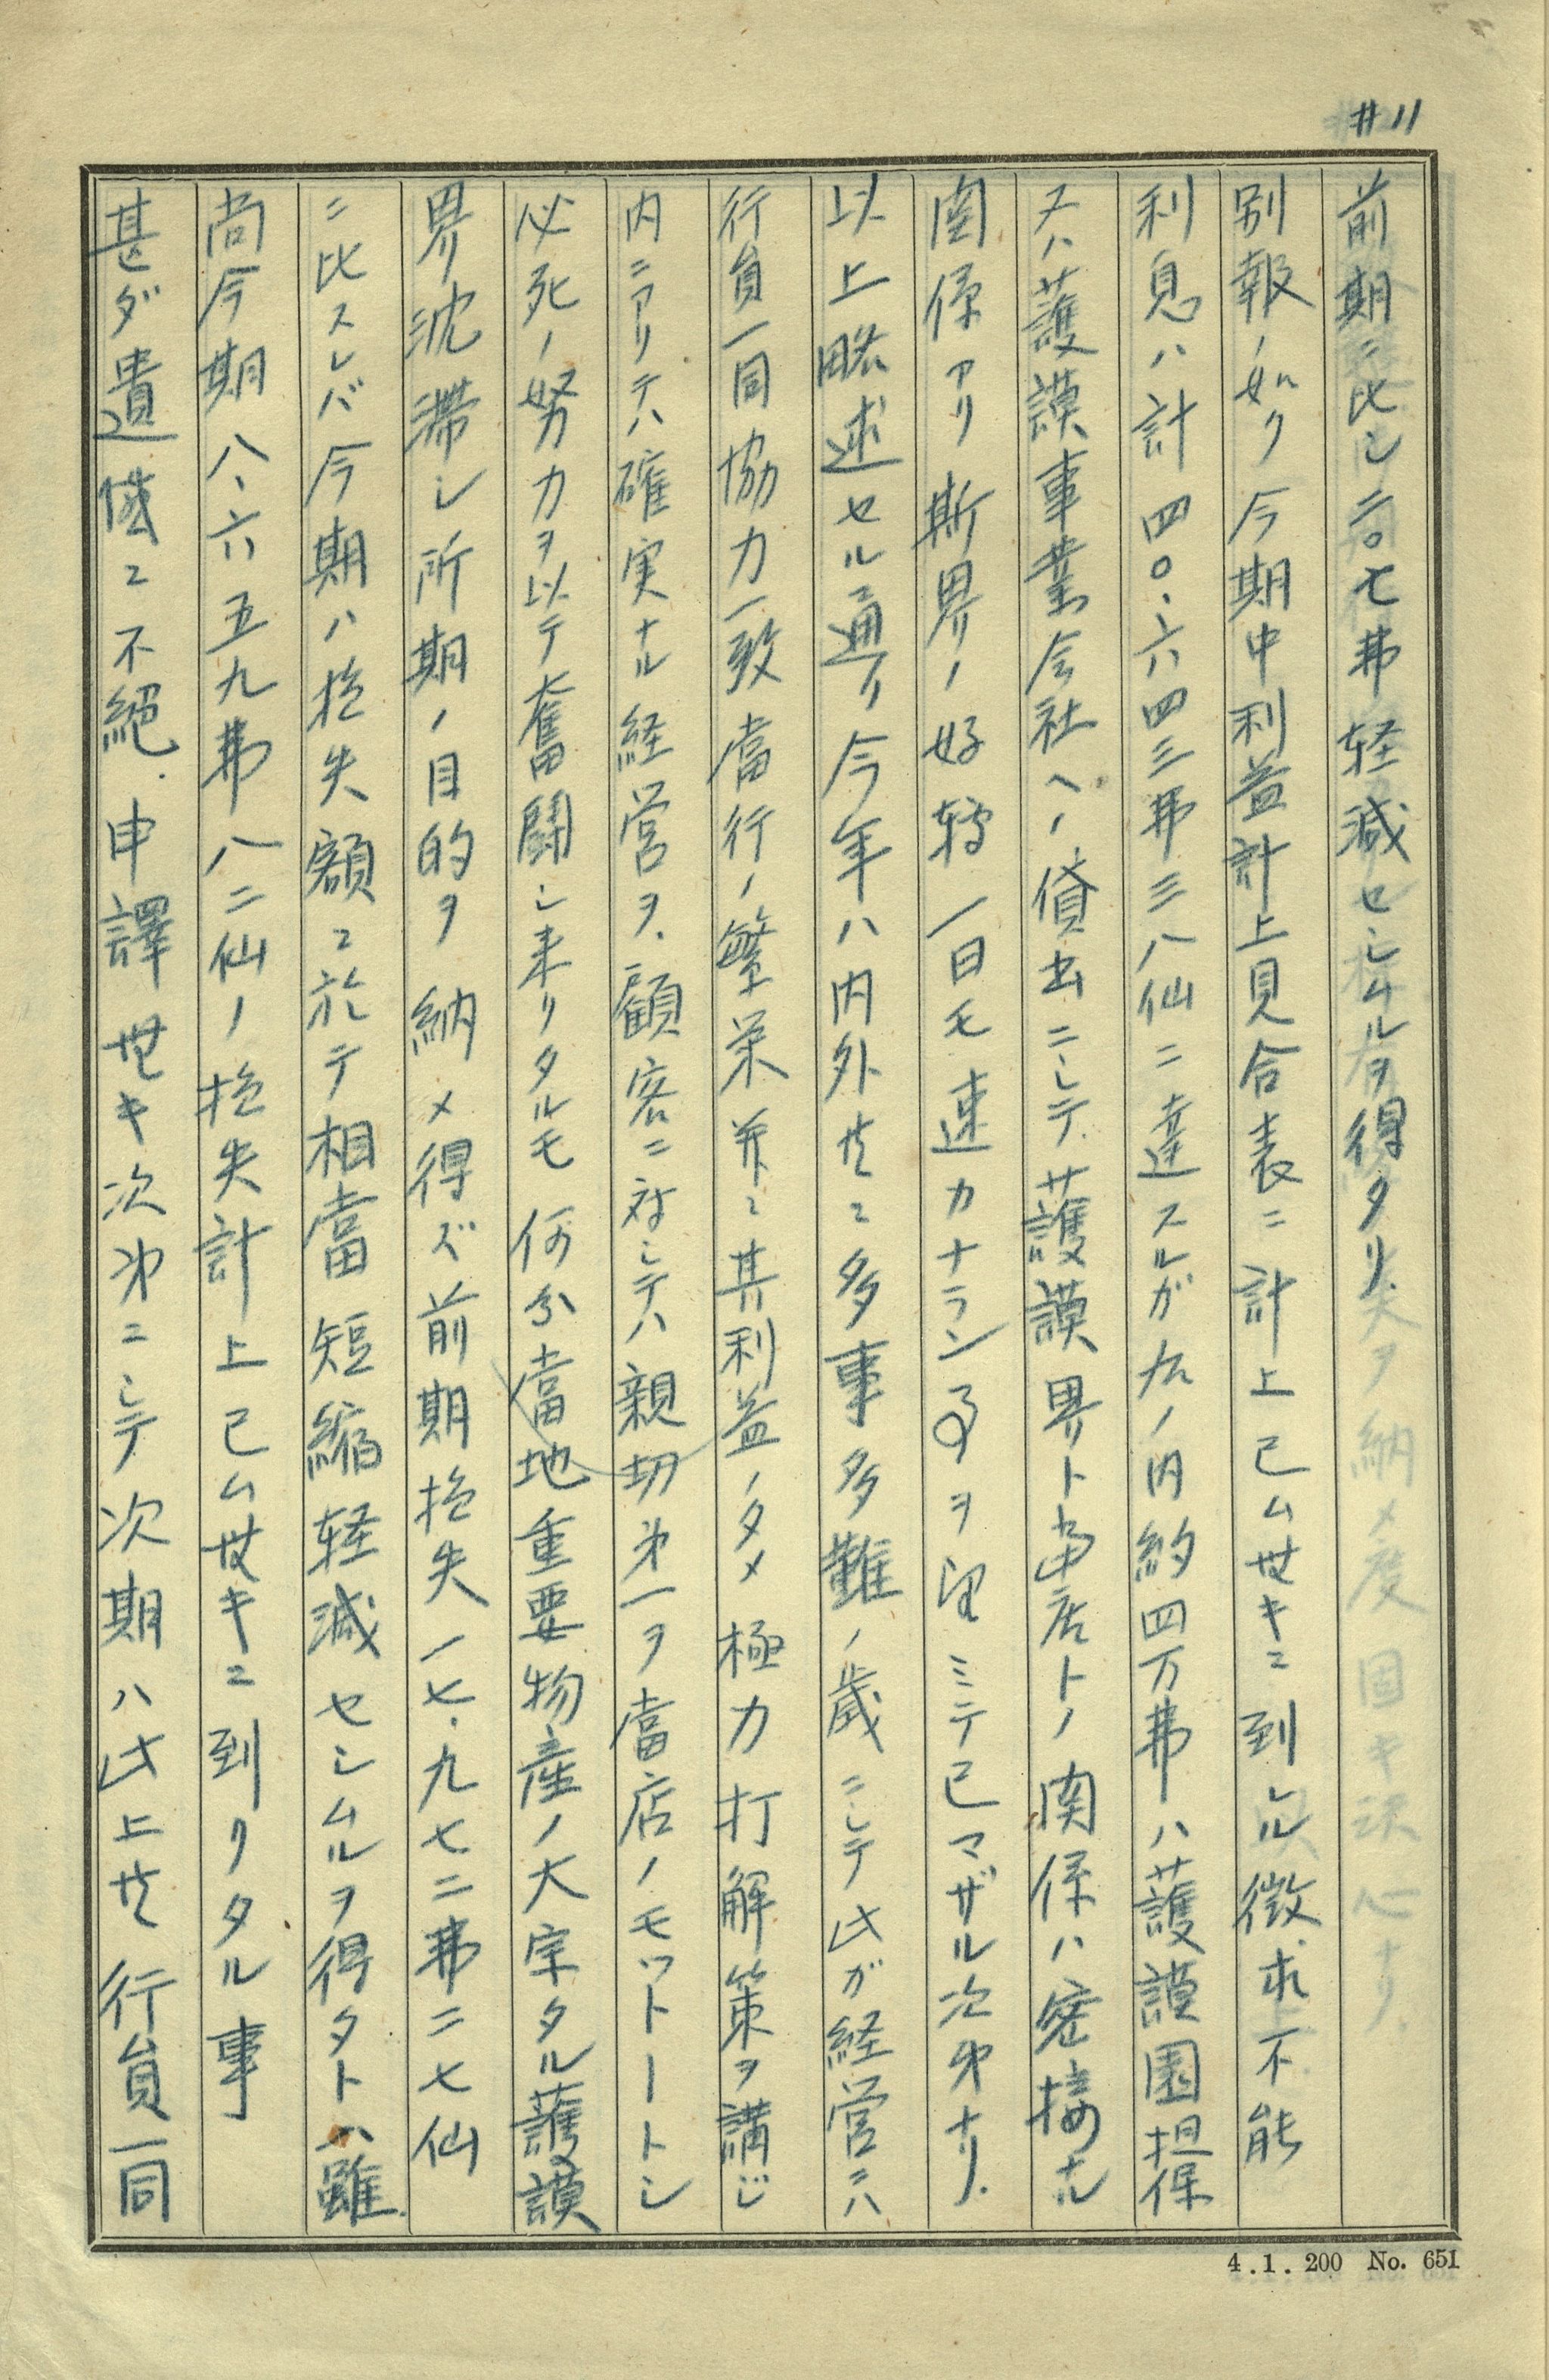 #11
前期ニ比シ二〇七弗軽減セシムルヲ得タリ.
別報ノ如ク今期中利益計上見合表ニ計上已ム世キニ到レル徴求不能
利息ハ計四〇、六四三弗三八仙ニ達スルガ右ノ内約四万弗ハ護謨園担保
又ハ護謨事業会社ヘノ貸出ニシテ護謨界ト当店トノ関係ハ密接ナル
関係アリ斯界ノ好轉一日モ速カナラン事ヲ望ミテ已マザル次第ナリ.
以上略述セル通リ今年ハ内外共ニ多事多難ノ歳ニシテ此ガ経営ニハ
行員一同協力一致當行ノ繁栄并ニ其利益ノタメ極力打解策ヲ講ジ
内ニアリテハ確実ナル経営ヲ、顧客ニ対シテハ親切第一ヲ當店ノモットートシ
必死ノ努力ヲ以テ奮闘シ来リタルモ何分當地重要物産ノ大宗タル護謨
界沈滞シ所期ノ目的ヲ納メ得ズ前期損失一七.九七二弗二七仙
ニ比スレバ今期ハ損失額ニ於テ相當短縮軽減セシムルヲ得タトハ雖
尚今期八、六五九弗八二仙ノ損失計上已ム世キニ到リタル事
甚ダ遺憾ニ不絶.申譯世キ次第ニシテ次期ハ此上共行員一同
4.1.200 No. 651